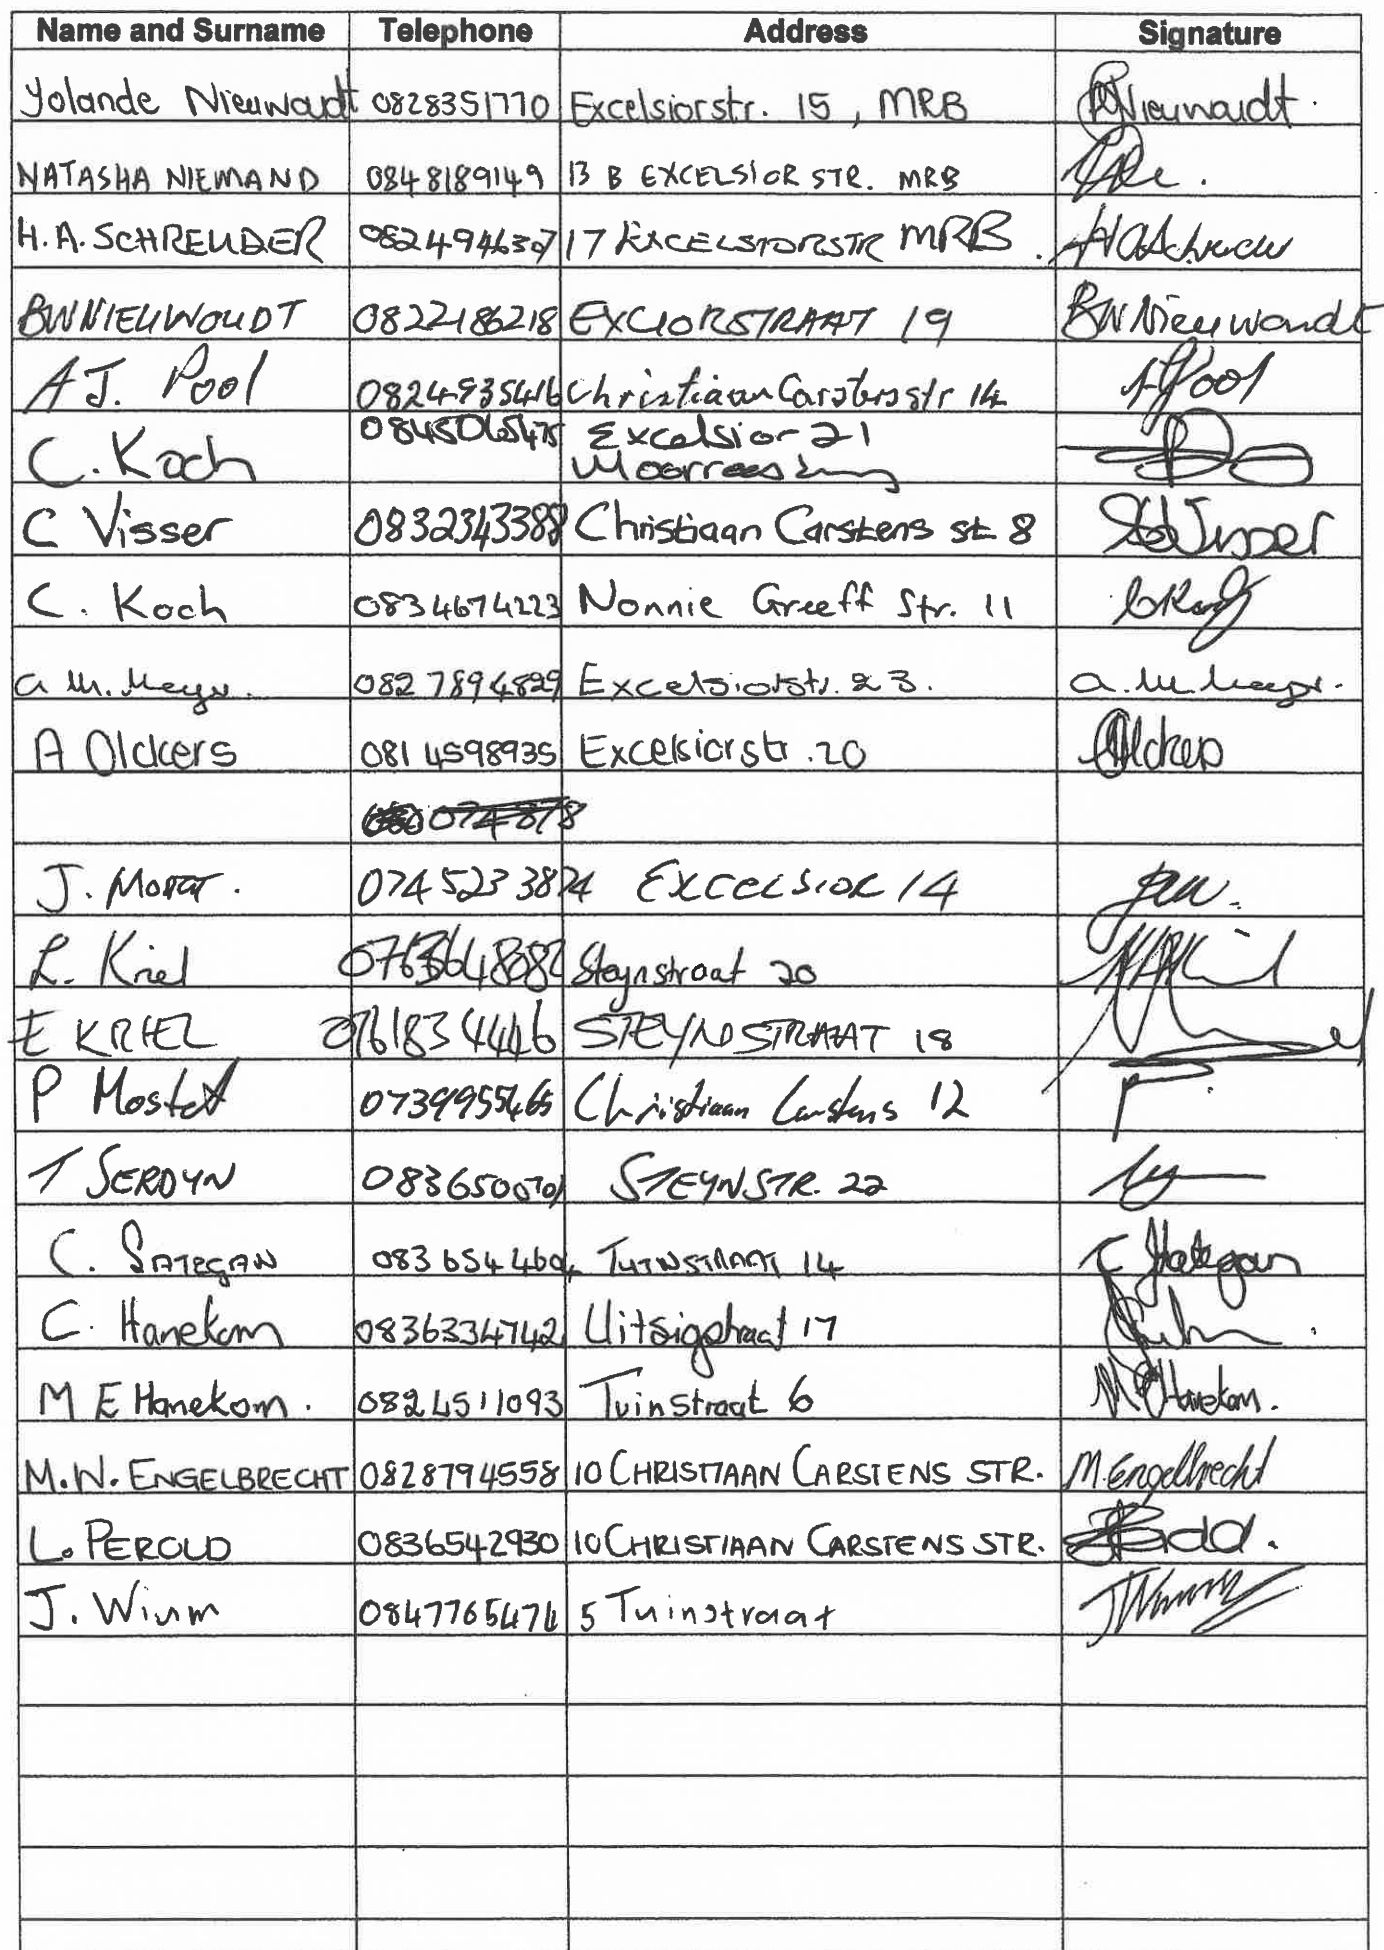 Name and Surname Telephone Address Signature
Yolande Nieuwoudt 0828351770 Excelsiorstr. 15, MRB Nieuwoudt.
NATASHA NIEMAND 0848189149 13 B EXCELSIOR STR. MRB
H.A. SCHREUDER 17 EXCELSIORSTR MRB
BWNIEUWOUDT 0822186218 EXCIORSTRAAT 19 BW Nieuwoudt
A J. Pool 0824935416 Christiaan Carstens str 14 AJPool
C. Koch Excelsior 21
Moorreesburg
C Visser 0832343388 Christiaan Carstens st 8 Visser
C. Koch 0834674223 Nonnie Greeff Str. 11
a M. 0827894829 Excelsiorstr. 23. a. M.
A Olckers 0814598935 Excelsiorstr. 20
J. 0745233874 EXCELSIOR 14
L. Kriel Steynstraat 20
E KRIEL 0761834446 STEYNSTRAAT 18
P Mostert 0739955465 Christiaan Carstens 12
T SERDYN STEYNSTR. 22
C. 083 654 4604 TUINSTRAAT 14
C. Hanekom 0836334742 Uitsigstraat 17
M E Hanekom. 0824511093 Tuinstraat 6 M E Hanekom.
M.W. ENGELBRECHT 0828794558 10 CHRISTIAAN CARSTENS STR. M. Engelbrecht
L. PEROLD 0836542930 10 CHRISTIAAN CARSTENS STR.
J. Wium 0847765474 5 Tuinstraat